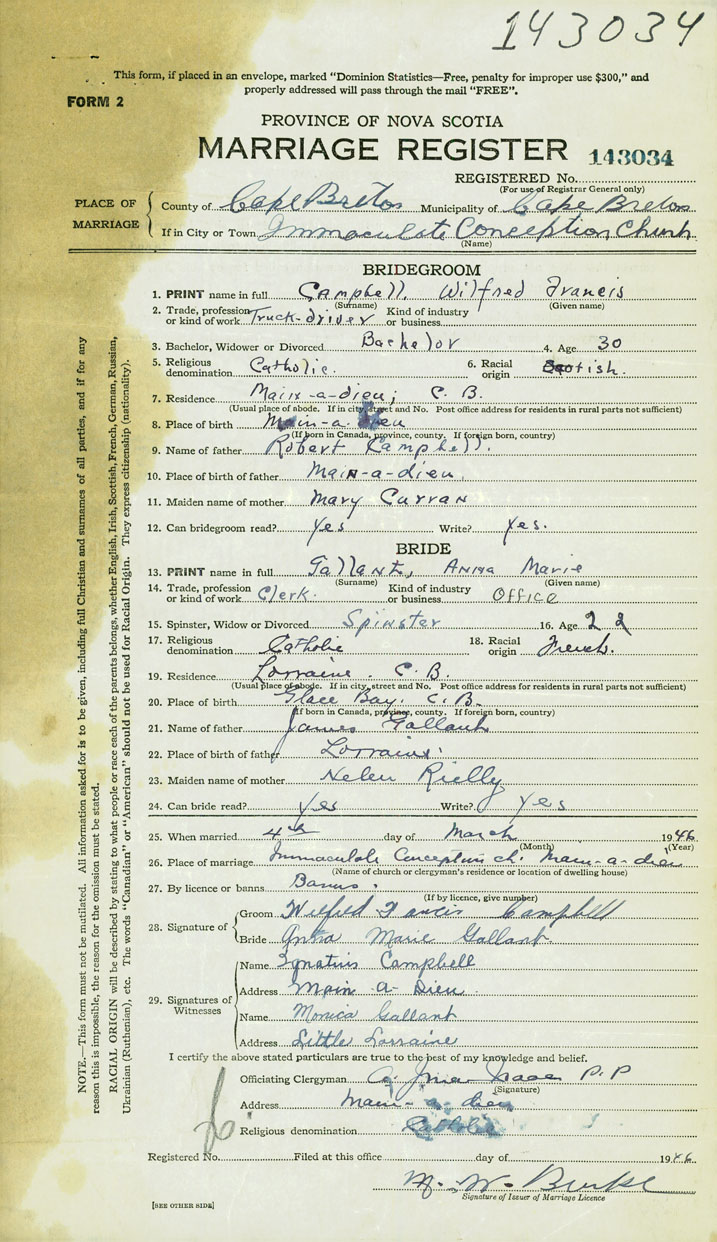 143034
This form, if placed in an envelope, marked "Dominion Statistics—Free, penalty for improper use $300," and
properly addressed will pass through the mail "FREE".
FORM 2
PROVINCE OF NOVA SCOTIA
MARRIAGE REGISTER 143034
REGISTERED No.
(For use of Registrar General only)
PLACE OF MARRIAGE
County of Cape Breton Municipality of Cape Breton
If in City or Town Immaculate Conception Church
(Name)
BRIDEGROOM
1. PRINT name in full Campbell Wilfred Francis
(Surname) (Given name)
2. Trade, profession or kind of work Truck-driver Kind of industry or business
3. Bachelor, Widower or Divorced Bachelor 4. Age 30
5. Religious denomination Catholic. 6. Racial origin Scotish.
7. Residence Main-a-dieu, C. B.
(Usual place of abode. If in city, street and No. Post office address for residents in rural parts not sufficient)
8. Place of birth Main-a-Dieu
(If born in Canada, province, county. If foreign born, country)
9. Name of father Robert Campbell.
10. Place of birth of father Main-a-dieu
11. Maiden name of mother Mary Curran
12. Can bridegroom read? Yes Write? Yes.
BRIDE
13. PRINT name in full Gallant, Anna Marie
(Surname) (Given name)
14. Trade, profession or kind of work Clerk. Kind of industry or business Office
15. Spinster, Widow or Divorced Spinster 16. Age 22
17. Religious denomination Catholic 18. Racial origin French.
19. Residence Lorraine. C. B.
(Usual place of abode. If in city, street and No. Post office address for residents in rural parts not sufficient)
20. Place of birth Glace Bay, C. B.
(If born in Canada, province, county. If foreign born, country)
21. Name of father James Gallant
22. Place of birth of father Lorraine
23. Maiden name of mother Helen Rielly
24. Can bride read? Yes Write? Yes
25. When married 4th day of March 1946
(Month) (Year)
26. Place of marriage Immaculate Conception ch. Main-a-dieu
(Name of church or clergyman's residence or location of dwelling house)
27. By licence or banns Banns.
(If by licence, give number)
28. Signature of
Groom Wilfred Francis Campbell
Bride Anna Marie Gallant
29. Signatures of Witnesses
Name Ignatius Campbell
Address Main a Dieu
Name Monica Gallant
Address Little Lorraine
I certify the above stated particulars are true to the best of my knowledge and belief.
Officiating Clergyman P.P
(Signature)
Address Main-a-dieu
Religious denomination Catholic
Registered No. Filed at this office day of 1946
M. W. Burke
Signature of Issuer of Marriage Licence
[SEE OTHER SIDE]
NOTE.—This form must not be mutilated. All information asked for is to be given, including full Christian and surnames of all parties, and if for any
reason this is impossible, the reason for the omission must be stated.
RACIAL ORIGIN will be described by stating to what people or race each of the parents belongs, whether English, Irish, Scottish, French, German, Russian,
Ukrainian (Ruthenian), etc. The words "Canadian" or "American" should not be used for Racial Origin. They express citizenship (nationality).